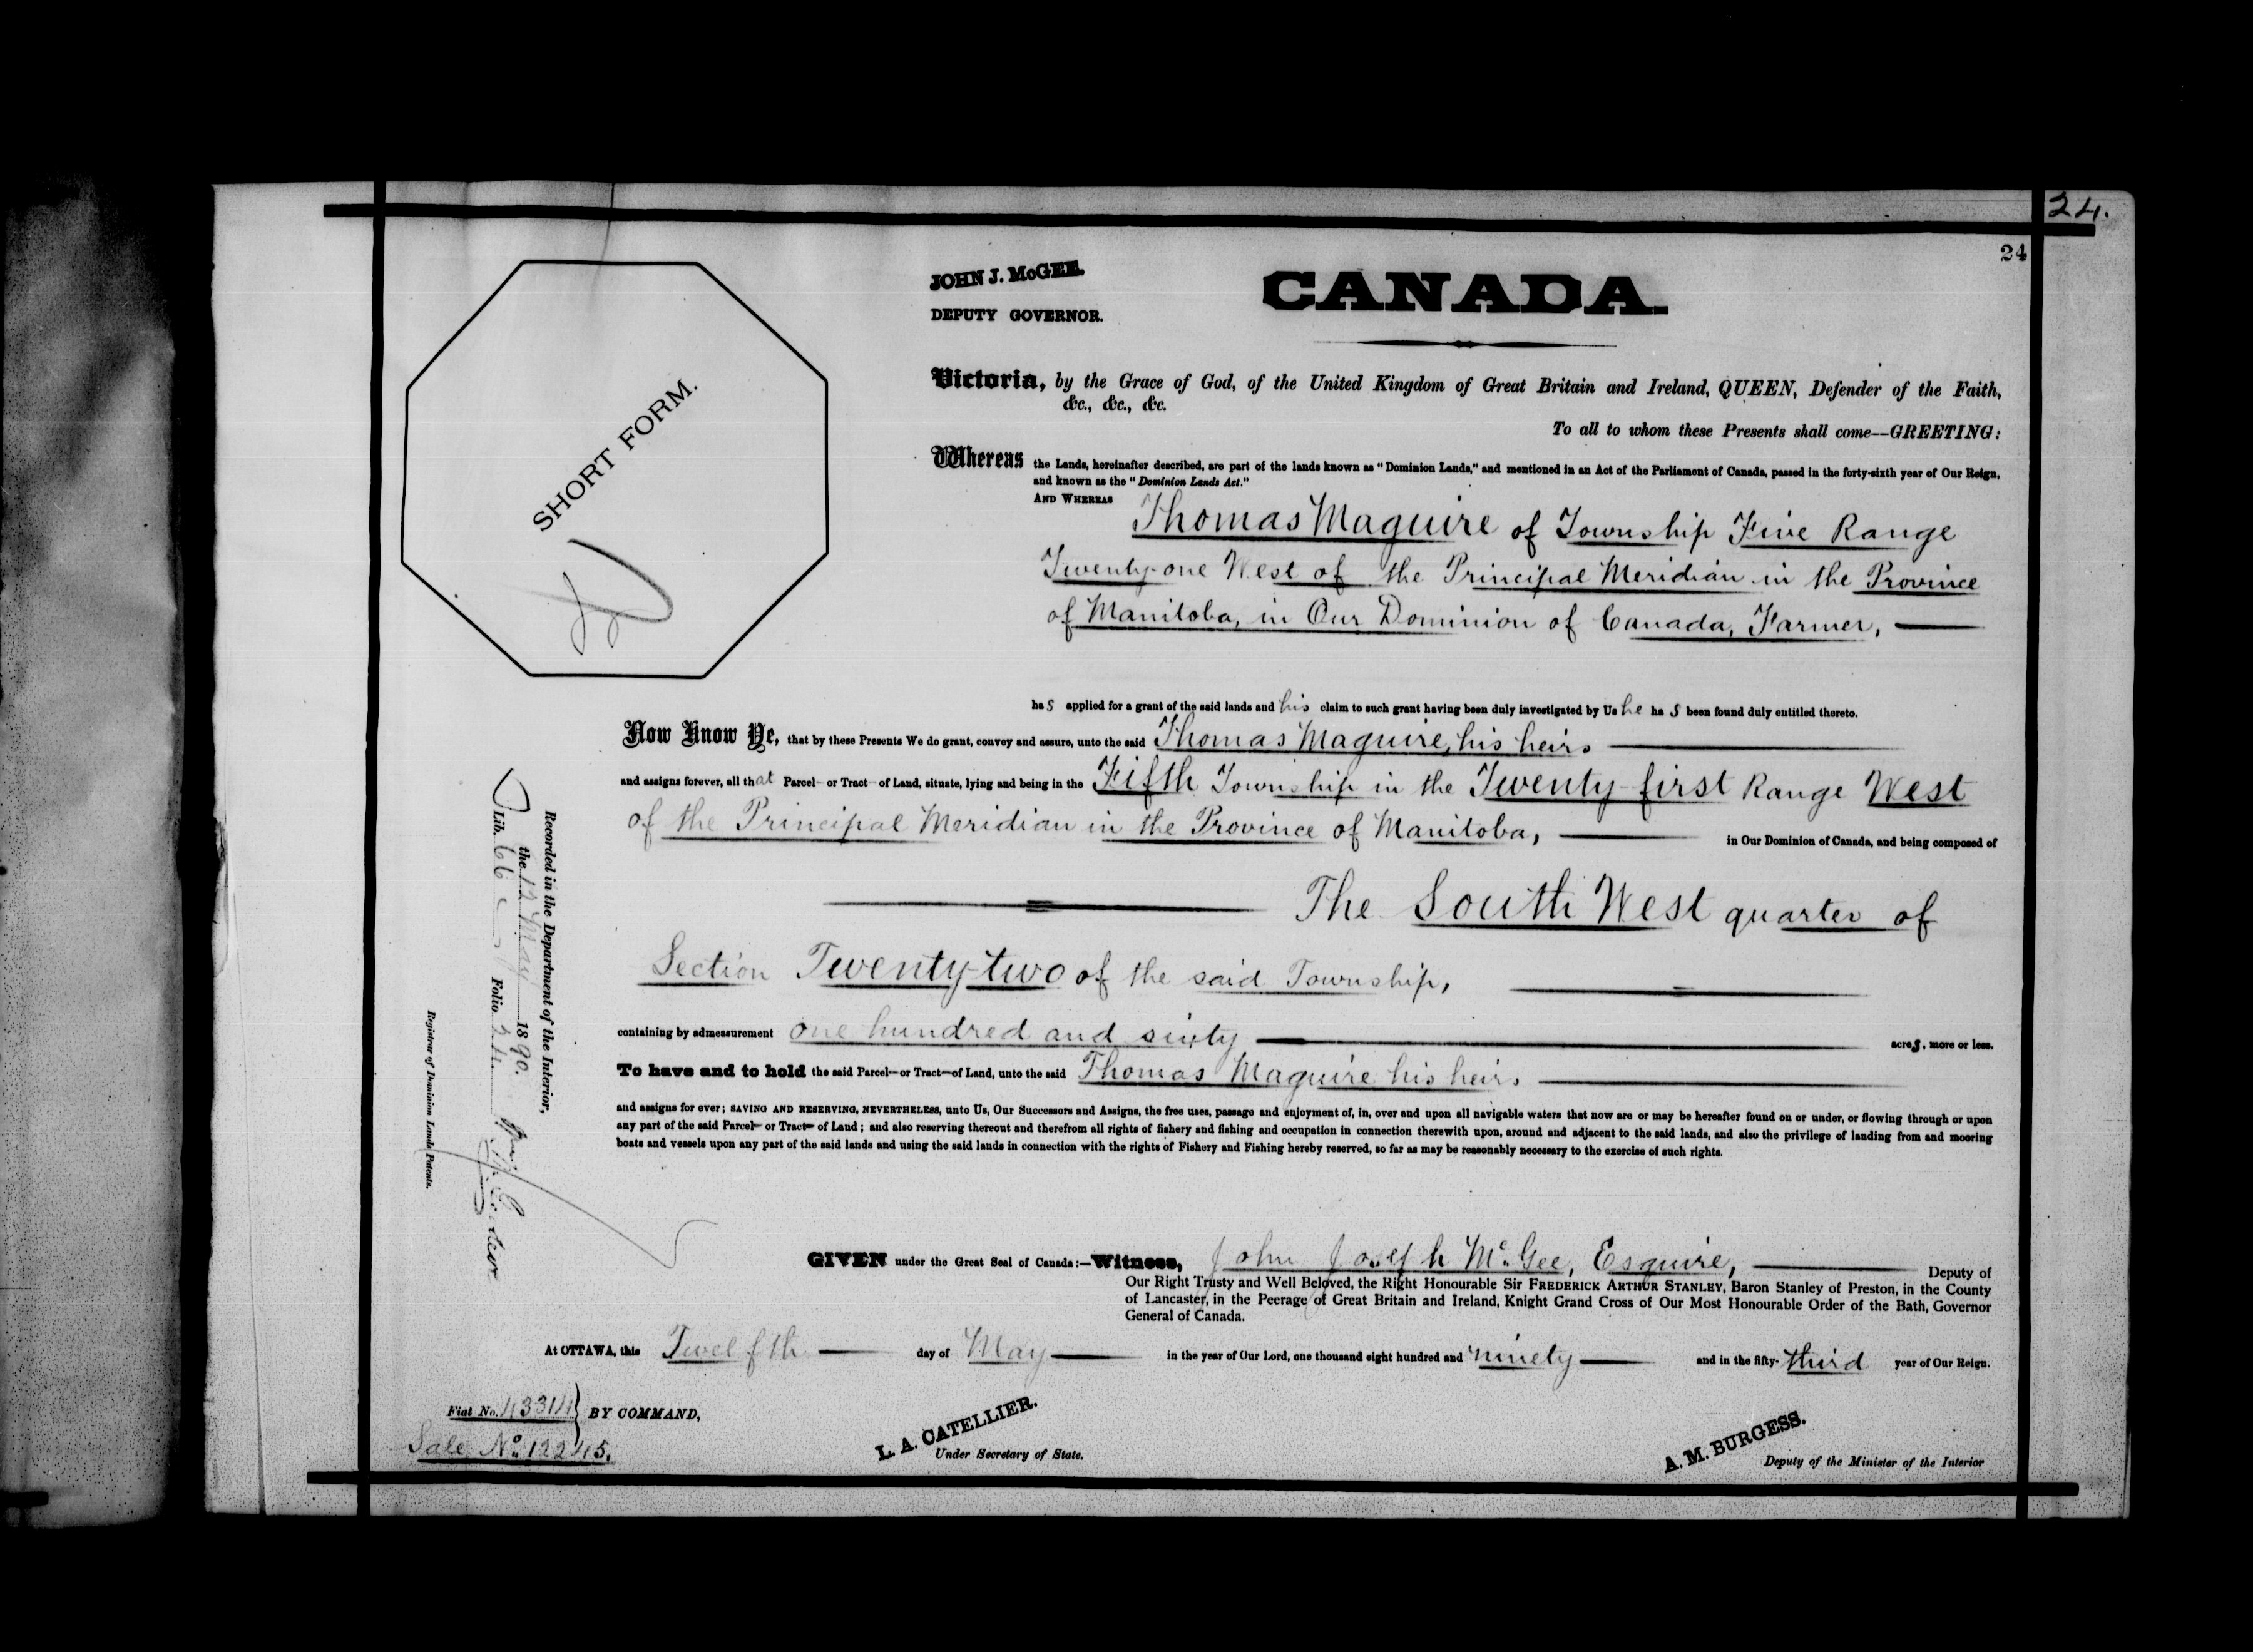 24.
24
JOHN J. McGEE.
DEPUTY GOVERNOR.
CANADA.
SHORT FORM.
Victoria, by the Grace of God, of the United Kingdom of Great Britain and Ireland, QUEEN, Defender of the Faith,
&c., &c., &c.
To all to whom these Presents shall come—GREETING:
Whereas the Lands, hereinafter described, are part of the lands known as "Dominion Lands," and mentioned in an Act of the Parliament of Canada, passed in the forty-sixth year of Our Reign,
and known as the "Dominion Lands Act."
AND WHEREAS Thomas Maguire of Township Five Range
Twenty-one West of the Principal Meridian in the Province
of Manitoba, in Our Dominion of Canada, Farmer,
has applied for a grant of the said lands and his claim to such grant having been duly investigated by Us he has been found duly entitled thereto.
Now Know Ye, that by these Presents We do grant, convey and assure, unto the said Thomas Maguire, his heirs
and assigns forever, all that Parcel or Tract of Land, situate, lying and being in the Fifth Township in the Twenty-first Range West
of the Principal Meridian in the Province of Manitoba, in Our Dominion of Canada, and being composed of
The South West quarter of
Section Twenty-two of the said Township,
containing by admeasurement one hundred and sixty acres, more or less.
To have and to hold the said Parcel or Tract of Land, unto the said Thomas Maguire his heirs
and assigns for ever; SAVING AND RESERVING, NEVERTHELESS, unto Us, Our Successors and Assigns, the free uses, passage and enjoyment of, in, over and upon all navigable waters that now are or may be hereafter found on or under, or flowing through or upon
any part of the said Parcel or Tract of Land; and also reserving thereout and therefrom all rights of fishery and fishing and occupation in connection therewith upon, around and adjacent to the said lands, and also the privilege of landing from and mooring
boats and vessels upon any part of the said lands and using the said lands in connection with the rights of Fishery and Fishing hereby reserved, so far as may be reasonably necessary to the exercise of such rights.
Recorded in the Department of the Interior,
the 12 May 1890.
Lib. 66 Folio 24
Registrar of Dominion Lands Patents.
GIVEN under the Great Seal of Canada:—Witness, John Joseph McGee, Esquire, Deputy of
Our Right Trusty and Well Beloved, the Right Honourable Sir FREDERICK ARTHUR STANLEY, Baron Stanley of Preston, in the County
of Lancaster, in the Peerage of Great Britain and Ireland, Knight Grand Cross of Our Most Honourable Order of the Bath, Governor
General of Canada.
At OTTAWA, this Twelfth day of May in the year of Our Lord, one thousand eight hundred and ninety and in the fifty-third year of Our Reign.
Fiat No. 43314 BY COMMAND,
Sale No. 12245.
L. A. CATELLIER.
Under Secretary of State.
A. M. BURGESS.
Deputy of the Minister of the Interior